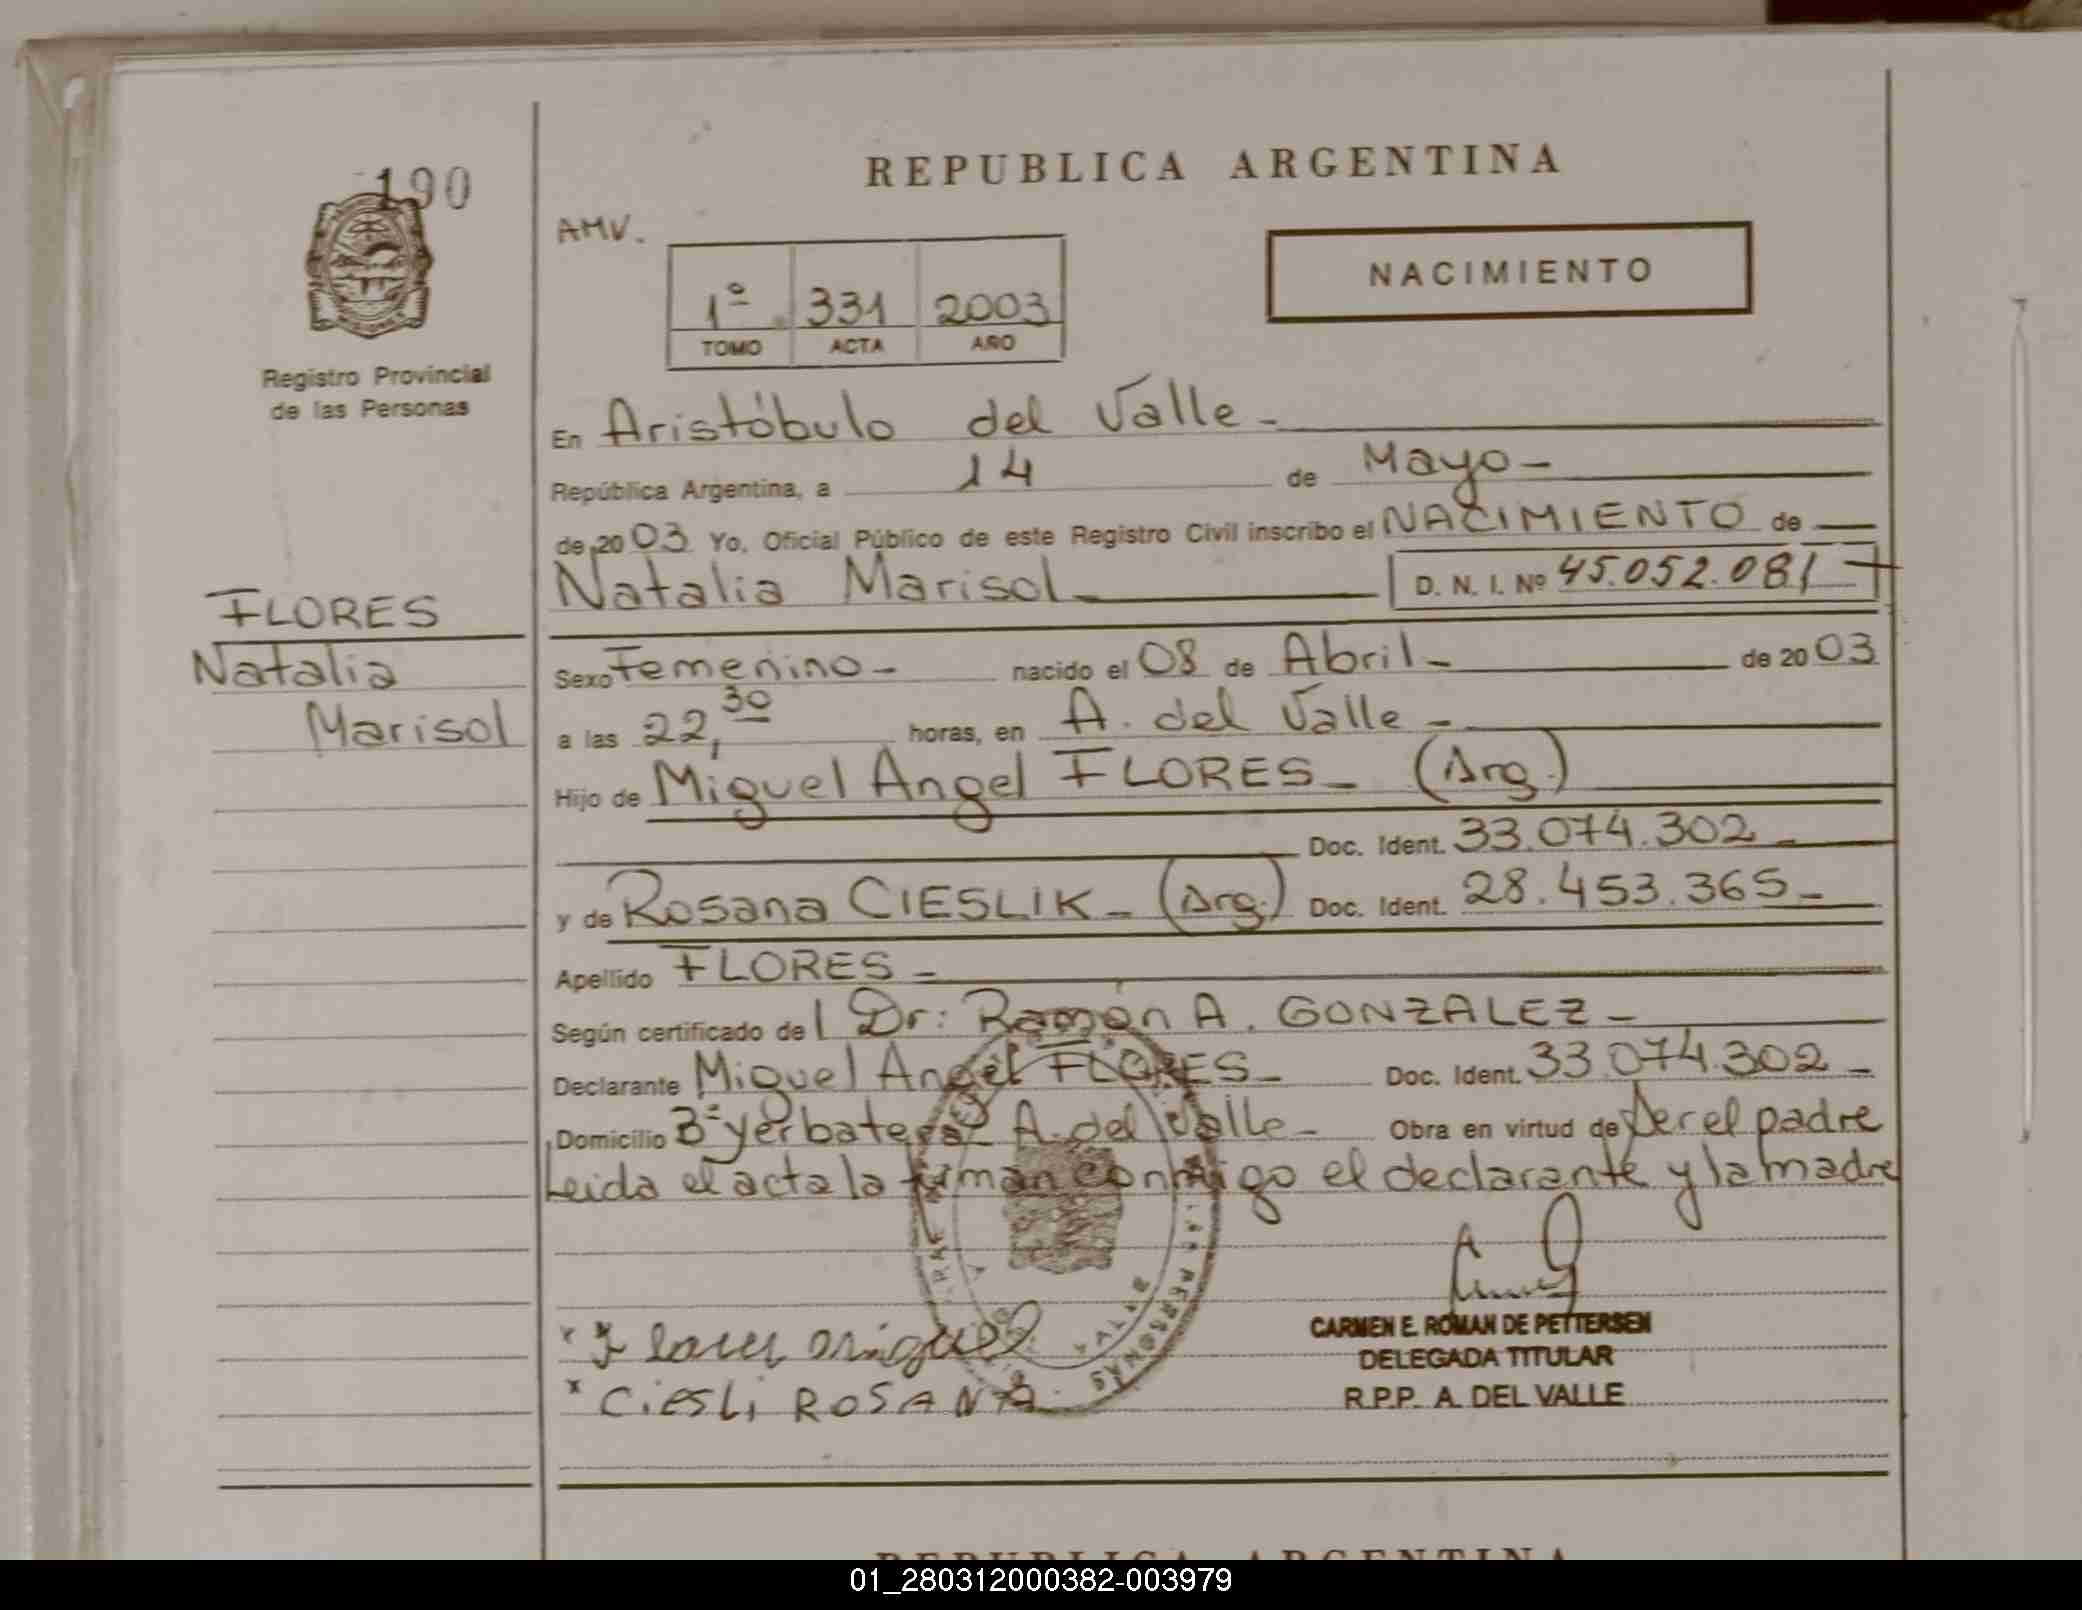 190
Registro Provincial
de las Personas
FLORES
Natalia
Marisol
REPUBLICA ARGENTINA
AMV.
NACIMIENTO
1º 331 2003
TOMO ACTA AÑO
En Aristóbulo del Valle -
República Argentina, a 14 de Mayo -
de 2003 Yo, Oficial Público de este Registro Civil inscribo el NACIMIENTO de
Natalia Marisol - D. N. I. Nº 45.052.081
Sexo Femenino - nacido el 08 de Abril - de 2003
a las 22,30 horas, en A. del Valle -
Hijo de Miguel Angel FLORES - (Arg.)
Doc. Ident. 33.074.302 -
y de Rosana CIESLIK - (Arg.) Doc. Ident. 28.453.365 -
Apellido FLORES -
Según certificado del Dr: Ramón A. GONZALEZ -
Declarante Miguel Angel FLORES - Doc. Ident. 33.074.302 -
Domicilio Bº Yerbatero A. del Valle - Obra en virtud de ser el padre
Leida el acta la firman conmigo el declarante y la madre
CARMEN E. ROMAN DE PETTERSEN
DELEGADA TITULAR
R.P.P. A. DEL VALLE
x Ciesli ROSANA
PERSONAS
REPUBLICA ARGENTINA
01_280312000382-003979